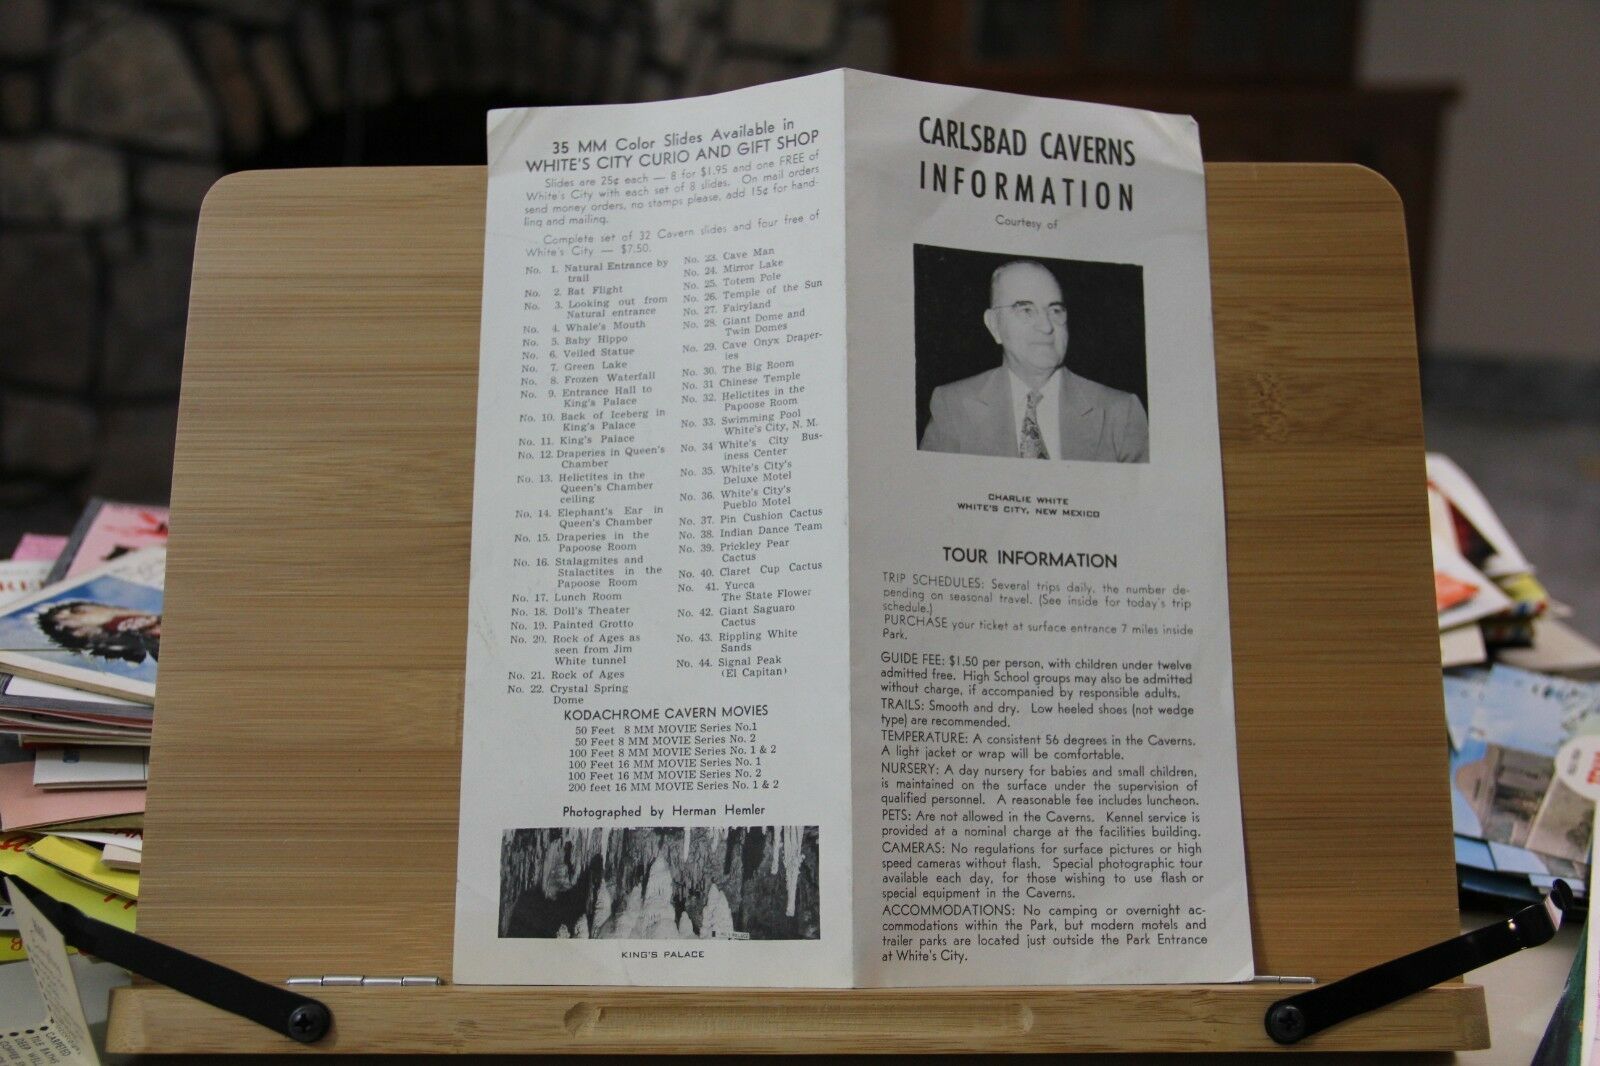 35 MM Color Slides Available in
WHITE'S CITY CURIO AND GIFT SHOP
Slides are 25¢ each — 8 for $1.95 and one FREE of
White's City with each set of 8 slides. On mail orders
send money orders, no stamps please, add 15¢ for hand-
ling and mailing.
Complete set of 32 Cavern slides and four free of
White's City — $7.50.
No. 1. Natural Entrance by
trail
No. 2. Bat Flight
No. 3. Looking out from
Natural entrance
No. 4. Whale's Mouth
No. 5. Baby Hippo
No. 6. Veiled Statue
No. 7. Green Lake
No. 8. Frozen Waterfall
No. 9. Entrance Hall to
King's Palace
No. 10. Back of Iceberg in
King's Palace
No. 11. King's Palace
No. 12. Draperies in Queen's
Chamber
No. 13. Helictites in the
Queen's Chamber
ceiling
No. 14. Elephant's Ear in
Queen's Chamber
No. 15. Draperies in the
Papoose Room
No. 16. Stalagmites and
Stalactites in the
Papoose Room
No. 17. Lunch Room
No. 18. Doll's Theater
No. 19. Painted Grotto
No. 20. Rock of Ages as
seen from Jim
White tunnel
No. 21. Rock of Ages
No. 22. Crystal Spring
Dome
No. 23. Cave Man
No. 24. Mirror Lake
No. 25. Totem Pole
No. 26. Temple of the Sun
No. 27. Fairyland
No. 28. Giant Dome and
Twin Domes
No. 29. Cave Onyx Draper-
ies
No. 30. The Big Room
No. 31 Chinese Temple
No. 32. Helictites in the
Papoose Room
No. 33. Swimming Pool
White's City, N. M.
No. 34 White's City Bus-
iness Center
No. 35. White's City's
Deluxe Motel
No. 36. White's City's
Pueblo Motel
No. 37. Pin Cushion Cactus
No. 38. Indian Dance Team
No. 39. Prickley Pear
Cactus
No. 40. Claret Cup Cactus
No. 41. Yucca
The State Flower
No. 42. Giant Saguaro
Cactus
No. 43. Rippling White
Sands
No. 44. Signal Peak
(El Capitan)
KODACHROME CAVERN MOVIES
50 Feet 8 MM MOVIE Series No.1
50 Feet 8 MM MOVIE Series No. 2
100 Feet 8 MM MOVIE Series No. 1 & 2
100 Feet 16 MM MOVIE Series No. 1
100 Feet 16 MM MOVIE Series No. 2
200 feet 16 MM MOVIE Series No. 1 & 2
Photographed by Herman Hemler
KING'S PALACE
CARLSBAD CAVERNS
INFORMATION
Courtesy of
CHARLIE WHITE
WHITE'S CITY, NEW MEXICO
TOUR INFORMATION
TRIP SCHEDULES: Several trips daily, the number de-
pending on seasonal travel. (See inside for today's trip
schedule.)
PURCHASE your ticket at surface entrance 7 miles inside
Park.
GUIDE FEE: $1.50 per person, with children under twelve
admitted free. High School groups may also be admitted
without charge, if accompanied by responsible adults.
TRAILS: Smooth and dry. Low heeled shoes (not wedge
type) are recommended.
TEMPERATURE: A consistent 56 degrees in the Caverns.
A light jacket or wrap will be comfortable.
NURSERY: A day nursery for babies and small children,
is maintained on the surface under the supervision of
qualified personnel. A reasonable fee includes luncheon.
PETS: Are not allowed in the Caverns. Kennel service is
provided at a nominal charge at the facilities building.
CAMERAS: No regulations for surface pictures or high
speed cameras without flash. Special photographic tour
available each day, for those wishing to use flash or
special equipment in the Caverns.
ACCOMMODATIONS: No camping or overnight ac-
commodations within the Park, but modern motels and
trailer parks are located just outside the Park Entrance
at White's City.
CARPETED
TILE BATHS